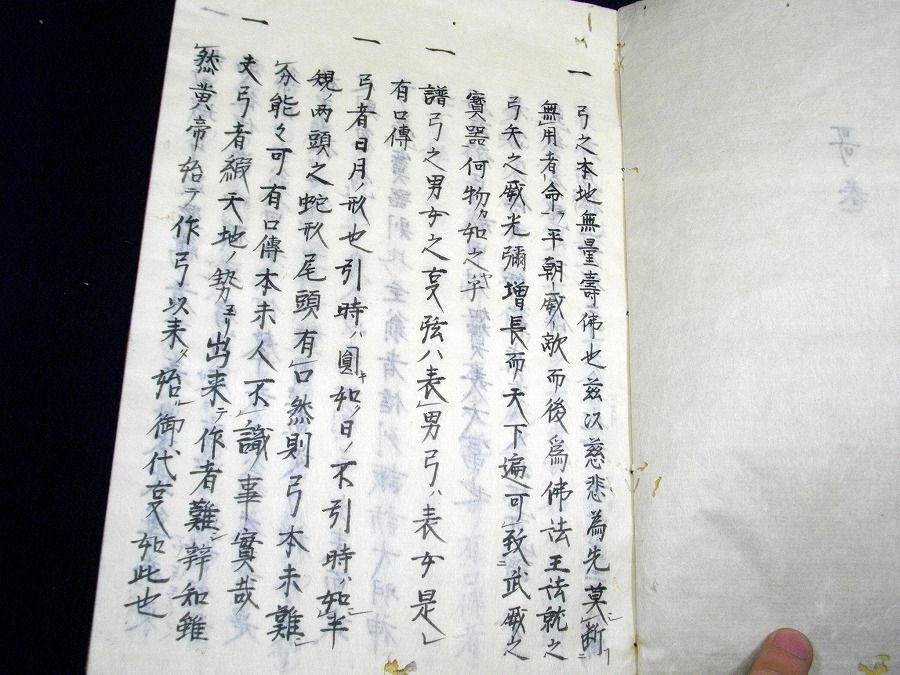 一 弓之本地無量壽佛也茲以慈悲為先莫断
無用者命平朝威敵而後為佛法王法就之
弓矢之威光彌増長而天下遍可致武威之
寳器何物カ如之乎
一 譜弓之男女之㕝弦ハ表男弓ハ表女是
有口傳
一 弓者日月ノ形也引時ハ圓キ如ノ日ノ不引時ハ如半
規ノ两頭之蛇形尾頭有口然則弓本末難
分能々可有口傳本末人不識ノ事實哉
一 夫弓者綴天地ノ勢ヨリ出来テ作者難辨知雖
然黄帝始テ作弓以来メ始御代㕝如此也
哥巻